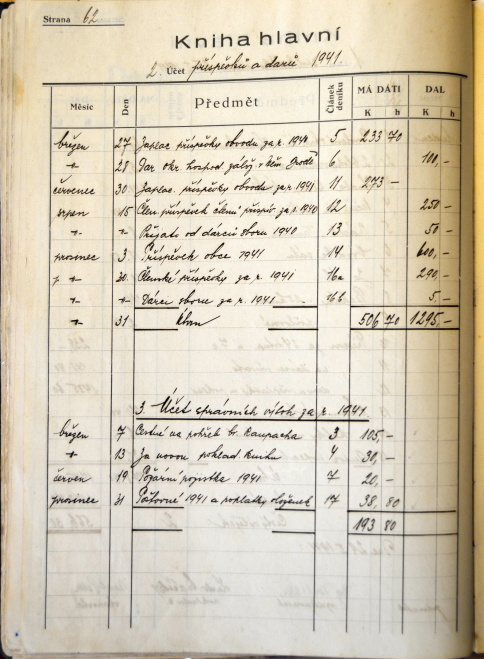 Strana 62
Kniha hlavní
2. Účet příspěvků a darů 1941.
Měsíc Den Předmět Článek deníku MÁ DÁTI DAL
K h K h
březen 27 Zaplac. příspěvky obvodu za r. 1940 5 233 70
" 28 Dar okr. hospod. zálož. v Něm. Brodě 6 100,-
červenec 30 Zaplac. příspěvky obvodu za r. 1941 11 273 -
srpen 15 Člen. příspěvek členů přispív. za r. 1940 12 250 -
" " Přijato od dárců sboru 1940 13 50 -
prosinec 3 Příspěvek obce 1941 14 600,-
" 30 Členské příspěvky za r. 1941 16a 290,-
" " Dárci sboru za r. 1941 16b 5,-
" 31 506 70 1295,-
3. Účet správních výloh za r. 1941
březen 7 Cestné na pohřeb br. Kaupacha 3 105,-
" 13 Za novou poklad. knihu 4 30,-
červen 19 Požární pojistka 1941 7 20,-
prosinec 31 Poštovné 1941 a poplatky složenek 17 38,80
193 80